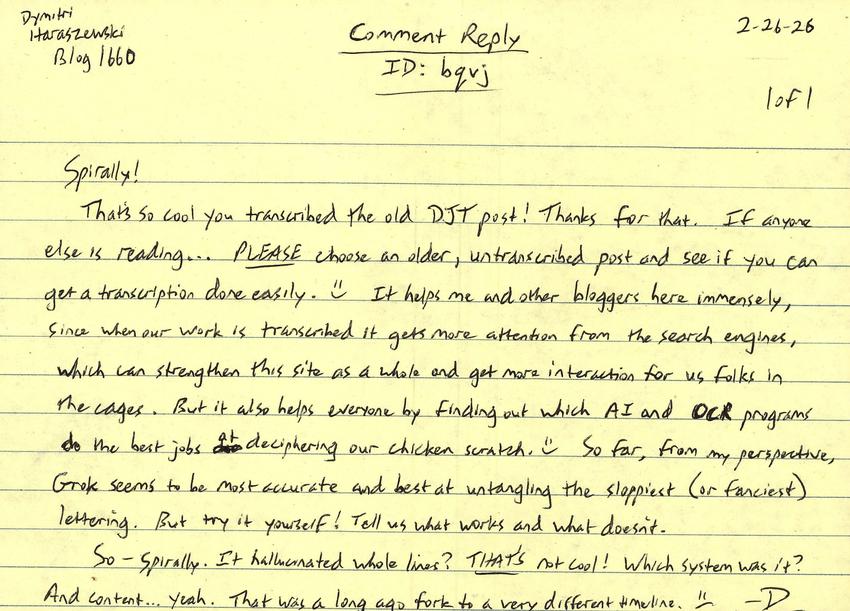 Dymitri
Haraszewski
Blog 1660
Comment Reply
ID: bqvj
2-26-26
1 of 1
Spirally!
That's so cool you transcribed the old DJT post! Thanks for that. If anyone
else is reading... PLEASE choose an older, untranscribed post and see if you can
get a transcription done easily. :) It helps me and other bloggers here immensely,
since when our work is transcribed it gets more attention from the search engines,
which can strengthen this site as a whole and get more interaction for us folks in
the cages. But it also helps everyone by finding out which AI and OCR programs
do the best jobs at deciphering our chicken scratch. :) So far, from my perspective,
Grok seems to be most accurate and best at untangling the sloppiest (or fanciest)
lettering. But try it yourself! Tell us what works and what doesn't.
So - Spirally. It hallucinated whole lines? THAT'S not cool! Which system was it?
And content... yeah. That was a long ago fork to a very different timeline. :) -D